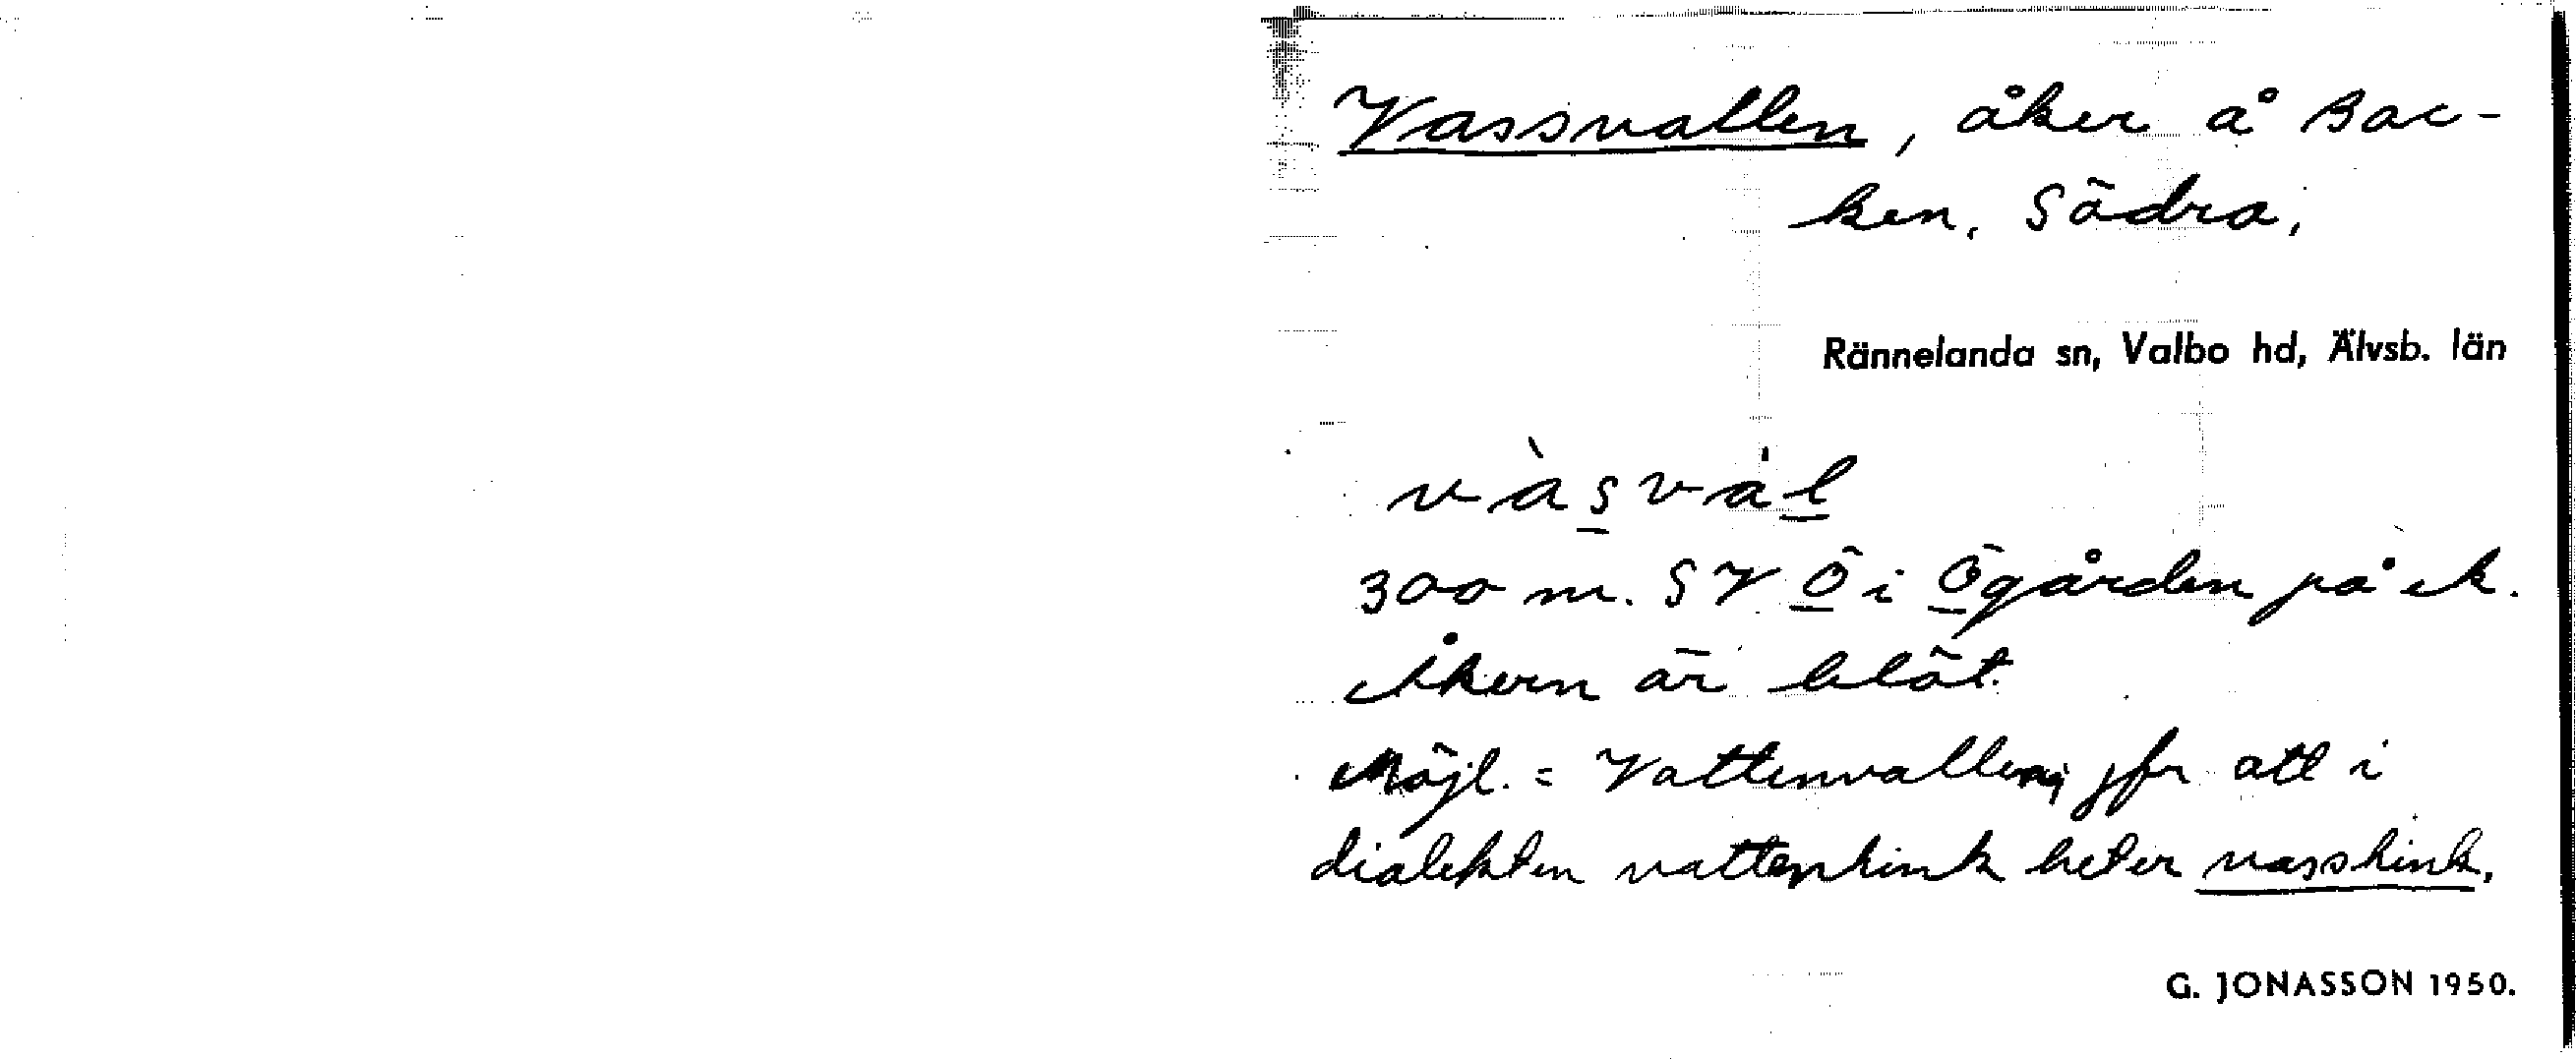 Vassvallen, åker å Bac-
ken, Södra,
Rännelanda sn, Valbo hd, Älvsb. län
vàsvàl
300 m. SV Ö i Ögården på ek.
Åkern är blöt.
Möjl. = Vattenvallen; jfr att i
dialekten vattenhink heter vasshink.
G. JONASSON 1950.